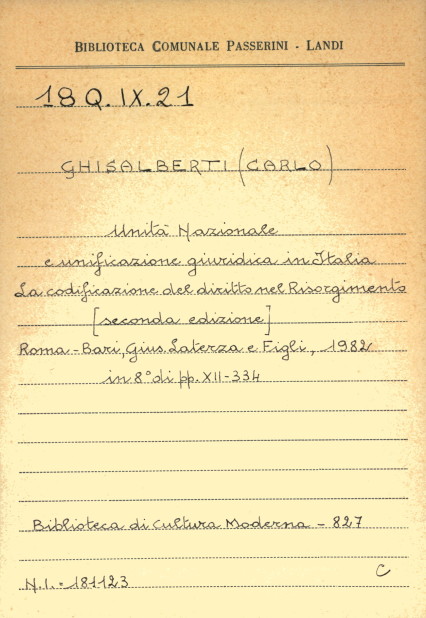 BIBLIOTECA COMUNALE PASSERINI - LANDI
18 Q. IX. 21
GHISALBERTI (CARLO)
Unità Nazionale
e unificazione giuridica in Italia
La codificazione del diritto nel Risorgimento
[seconda edizione]
Roma - Bari, Gius. Laterza e Figli, 1982
in 8° di pp. XII-334
Biblioteca di Cultura Moderna - 827
N.I. - 181123
C